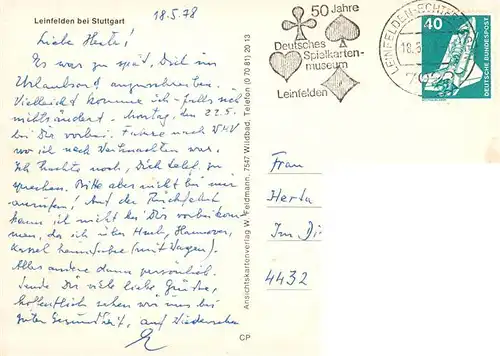 Leinfelden bei Stuttgart
18.5.78
Liebe Herta!
Es war zu spät, Dich im
Urlaubsort anzuschreiben.
Vielleicht komme ich - falls sich
nichts ändert - Montag, den 22.5.
bei Dir vorbei. Fahre nach
wo ich nach Weihnachten war.
Ich suchte noch, Dich telef. zu
sprechen. Bitte aber nicht bei mir
anrufen! Auf der Rückfahrt
kann ich nicht bei Dir vorbeikom-
men, da ich über Hannover,
Kassel heimfahre (mit Wagen).
Alles andere dann persönlich.
Sende Dir viele liebe Grüße,
hoffentlich sehen wir uns bei
guter Gesundheit, auf Wiedersehen
CP
Ansichtskartenverlag W. Feldmann, 7547 Wildbad, Telefon (0 70 81) 20 13
50 Jahre
Deutsches
Spielkarten-
museum
Leinfelden
LEINFELDEN-ECHTER
18.5.
40
DEUTSCHE BUNDESPOST
Frau
Herta
Im Di
4432